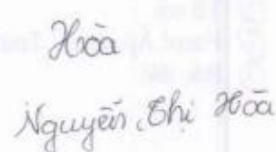 Hòa
Nguyễn Thị Hòa